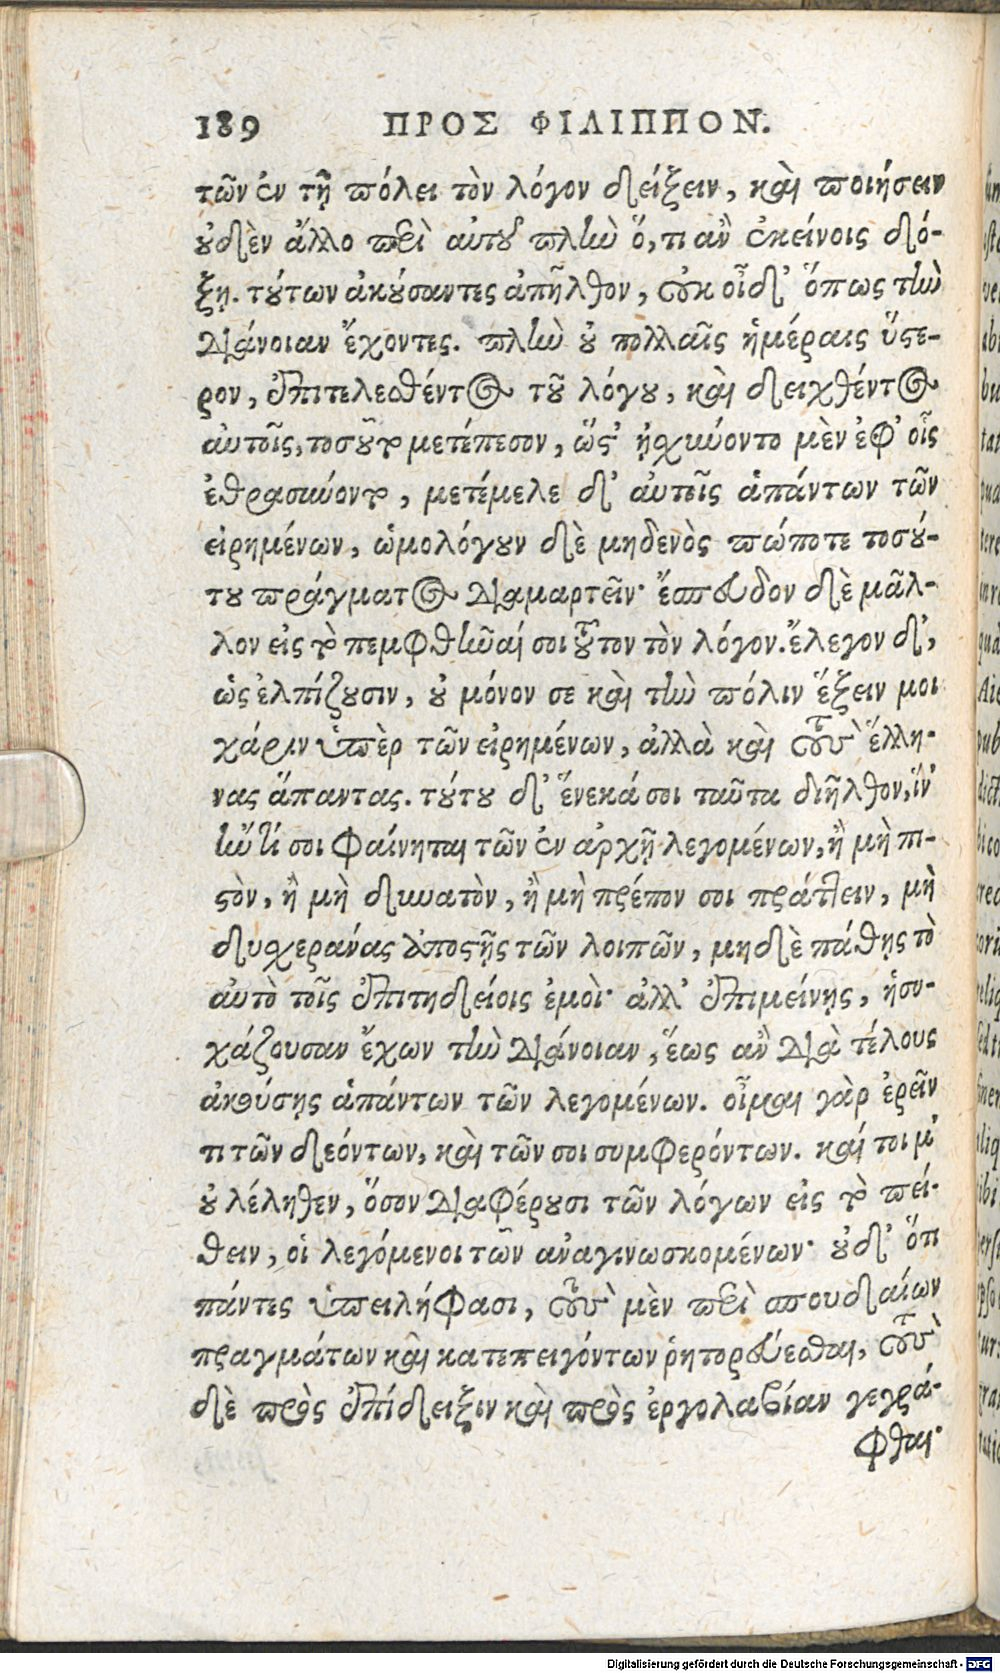 189 ΠΡΟΣ ΦΙΛΙΠΠΟΝ.
τῶν ἐν τῇ πόλει τὸν λόγον δείξειν, καὶ ποιήσειν
οὐδὲν ἄλλο περὶ αὐτοῦ πλὴν ὅ,τι ἂν ἐκείνοις δό-
ξῃ. τούτων ἀκούσαντες ἀπῆλθον, οὐκ οἶδ' ὅπως τὴν
διάνοιαν ἔχοντες. πλὴν οὐ πολλαῖς ἡμέραις ὕστε-
ρον, ἐπιτελεσθέντος τοῦ λόγου, καὶ δειχθέντος
αὐτοῖς, τοσοῦτο μετέπεσον, ὥστ' ᾐσχύνοντο μὲν ἐφ' οἷς
ἐθρασύνοντο, μετέμελε δ' αὐτοῖς ἁπάντων τῶν
εἰρημένων, ὡμολόγουν δὲ μηδενὸς πώποτε τοσού-
του πράγματος διαμαρτεῖν· ἔσπευδον δὲ μᾶλ-
λον εἰς τὸ πεμφθῆναί σοι τοῦτον τὸν λόγον. ἔλεγον δ',
ὡς ἐλπίζουσιν, οὐ μόνον σε καὶ τὴν πόλιν ἕξειν μοι
χάριν ὑπὲρ τῶν εἰρημένων, ἀλλὰ καὶ τοὺς ἕλλη-
νας ἅπαντας. τούτου δ' ἕνεκά σοι ταῦτα διῆλθον, ἵν'
ἤν τί σοι φαίνηται τῶν ἐν ἀρχῇ λεγομένων, ἢ μὴ πι-
στὸν, ἢ μὴ δυνατὸν, ἢ μὴ πρέπον σοι πράττειν, μὴ
δυσχεράνας ἀποστῇς τῶν λοιπῶν, μηδὲ πάθῃς τὸ
αὐτὸ τοῖς ἐπιτηδείοις ἐμοὶ· ἀλλ' ἐπιμείνῃς, ἡσυ-
χάζουσαν ἔχων τὴν διάνοιαν, ἕως ἂν διὰ τέλους
ἀκούσῃς ἁπάντων τῶν λεγομένων. οἶμαι γὰρ ἐρεῖν
τι τῶν δεόντων, καὶ τῶν σοι συμφερόντων. καί τοι μ'
οὐ λέληθεν, ὅσον διαφέρουσι τῶν λόγων εἰς τὸ πεί-
θειν, οἱ λεγόμενοι τῶν ἀναγινωσκομένων· οὐδ' ὅτι
πάντες ὑπειλήφασι, τοὺς μὲν περὶ σπουδαίων
πραγμάτων καὶ κατεπειγόντων ῥητορεύεσθαι, τοὺς
δὲ πρὸς ἐπίδειξιν καὶ πρὸς ἐργολαβίαν γεγρά-
φθαι·
Digitalisierung gefördert durch die Deutsche Forschungsgemeinschaft - DFG